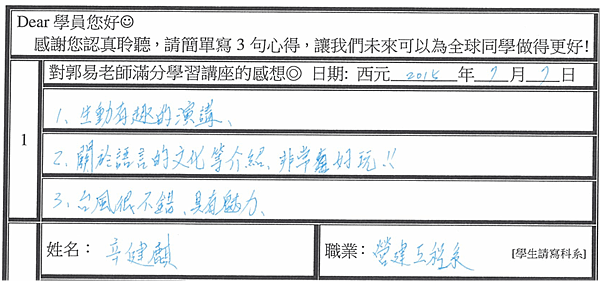 Dear 學員您好☺
感謝您認真聆聽，請簡單寫 3 句心得，讓我們未來可以為全球同學做得更好!
對郭易老師滿分學習講座的感想◎ 日期: 西元 2015 年 7 月 7 日
1
1、生動有趣的演講、
2、關於語言的文化等介紹、非常好玩!!
3、台風很不錯、具有魅力、
姓名： 辛健麒 職業： 營建工程系 [學生請寫科系]